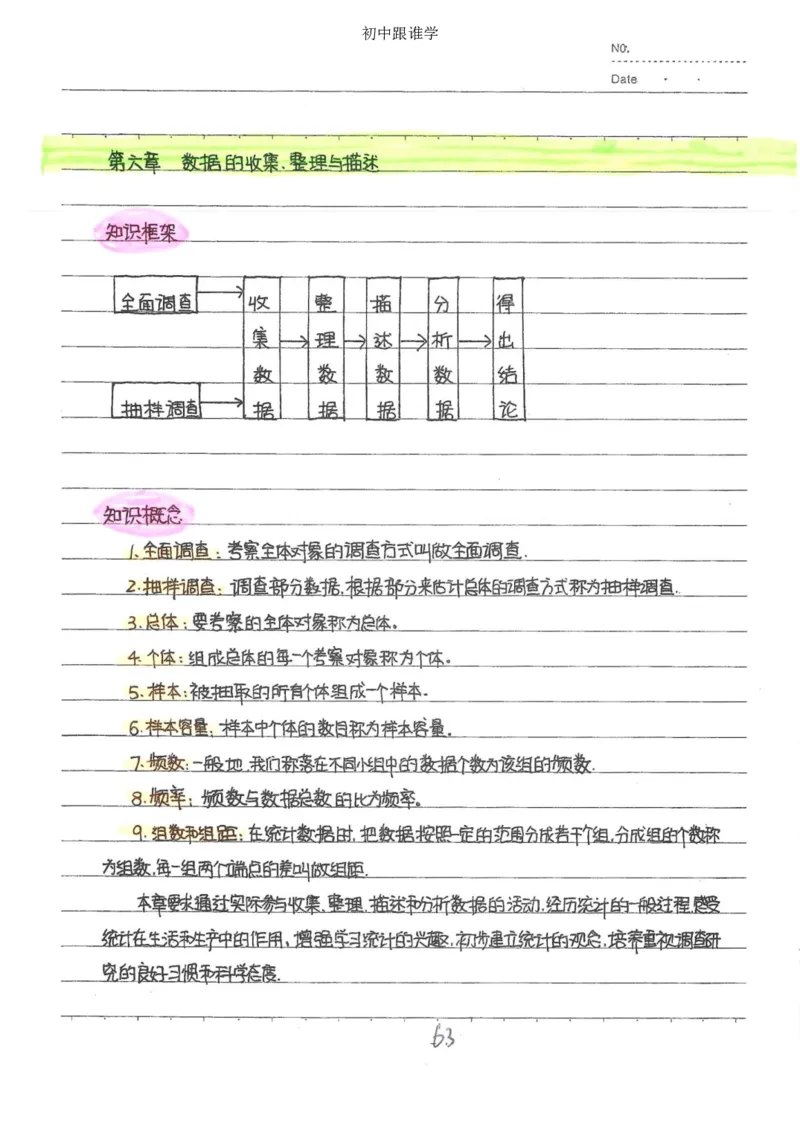 初中跟谁学
NO.
Date
第六章 数据的收集、整理与描述
知识框架
全面调查
抽样调查
收集数据
整理数据
描述数据
分析数据
得出结论
知识概念
1.全面调查：考察全体对象的调查方式叫做全面调查.
2.抽样调查：调查部分数据,根据部分来估计总体的调查方式称为抽样调查.
3.总体：要考察的全体对象称为总体。
4.个体：组成总体的每一个考察对象称为个体。
5.样本：被抽取的所有个体组成一个样本.
6.样本容量：样本中个体的数目称为样本容量。
7.频数：一般地,我们称落在不同小组中的数据个数为该组的频数.
8.频率：频数与数据总数的比为频率。
9.组数和组距：在统计数据时,把数据按照一定的范围分成若干个组,分成组的个数称
为组数,每一组两个端点的差叫做组距.
本章要求通过实际参与收集、整理、描述和分析数据的活动,经历统计的一般过程,感受
统计在生活和生产中的作用,增强学习统计的兴趣,初步建立统计的观念,培养重视调查研
究的良好习惯和科学态度.
63